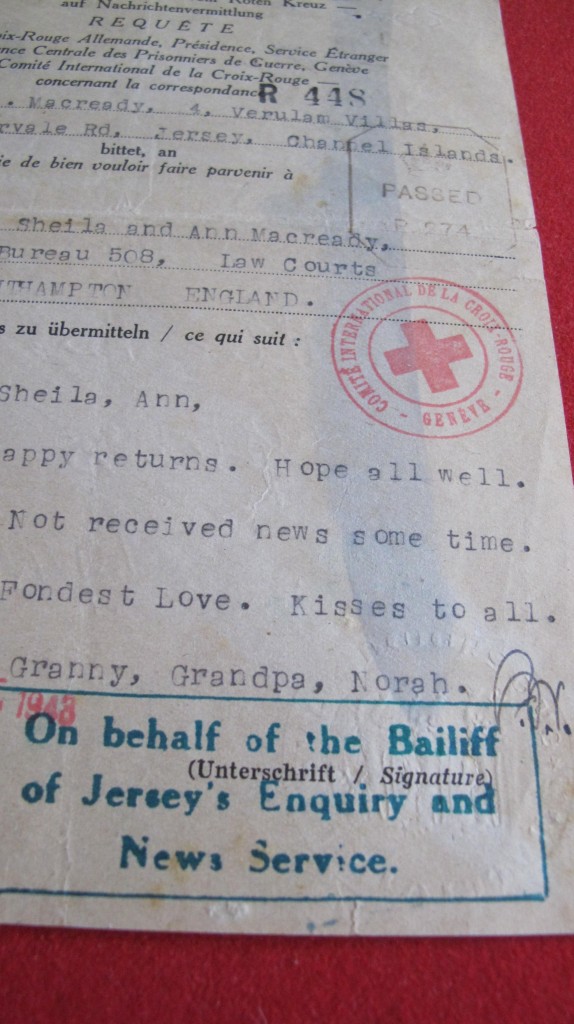 Roten Kreuz —
auf Nachrichtenvermittlung
REQUÊTE
ix-Rouge Allemande, Présidence, Service Étranger
nce Centrale des Prisonniers de Guerre, Genève
Comité International de la Croix-Rouge —
concernant la correspondance
R 448
. Macready, 4, Verulam Villas,
rvale Rd, Jersey, Channel Islands.
bittet, an
ie de bien vouloir faire parvenir à
PASSED
P.274
Sheila and Ann Macready,
Bureau 508, Law Courts
UTHAMPTON ENGLAND.
COMITÉ INTERNATIONAL DE LA CROIX-ROUGE - GENÈVE -
s zu übermitteln / ce qui suit :
Sheila, Ann,
appy returns. Hope all well.
Not received news some time.
Fondest Love. Kisses to all.
Granny, Grandpa, Norah.
1943
On behalf of the Bailiff
(Unterschrift / Signature)
of Jersey's Enquiry and
News Service.